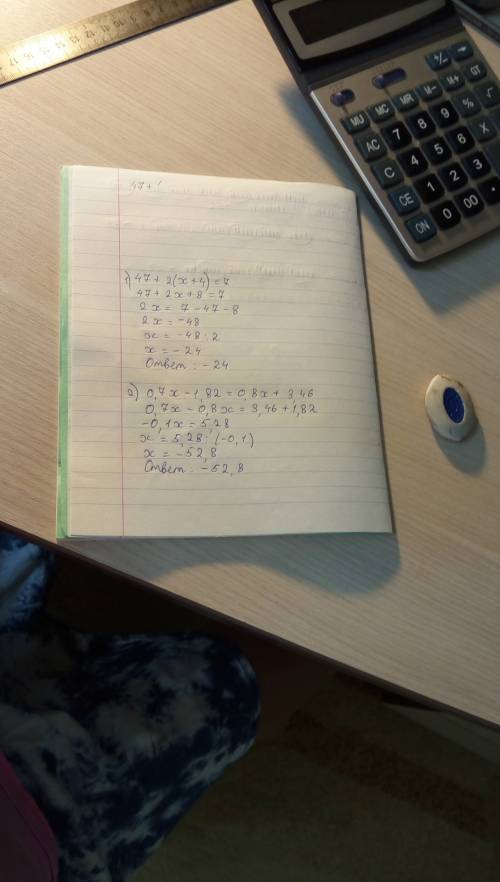 47+
1) 47+2(x+4)=7
47+2x+8=7
2x= 7-47-8
2x=-48
x=-48:2
x=-24
Ответ: -24
2) 0,7x-1,82=0,8x+3,46
0,7x-0,8x=3,46+1,82
-0,1x=5,28
x=5,28:(-0,1)
x=-52,8
Ответ: -52,8
+/- →
MU MC MR M- M+ GT
AC 7 8 9 % √
C 4 5 6 X
CE 1 2 3
ON 0 00